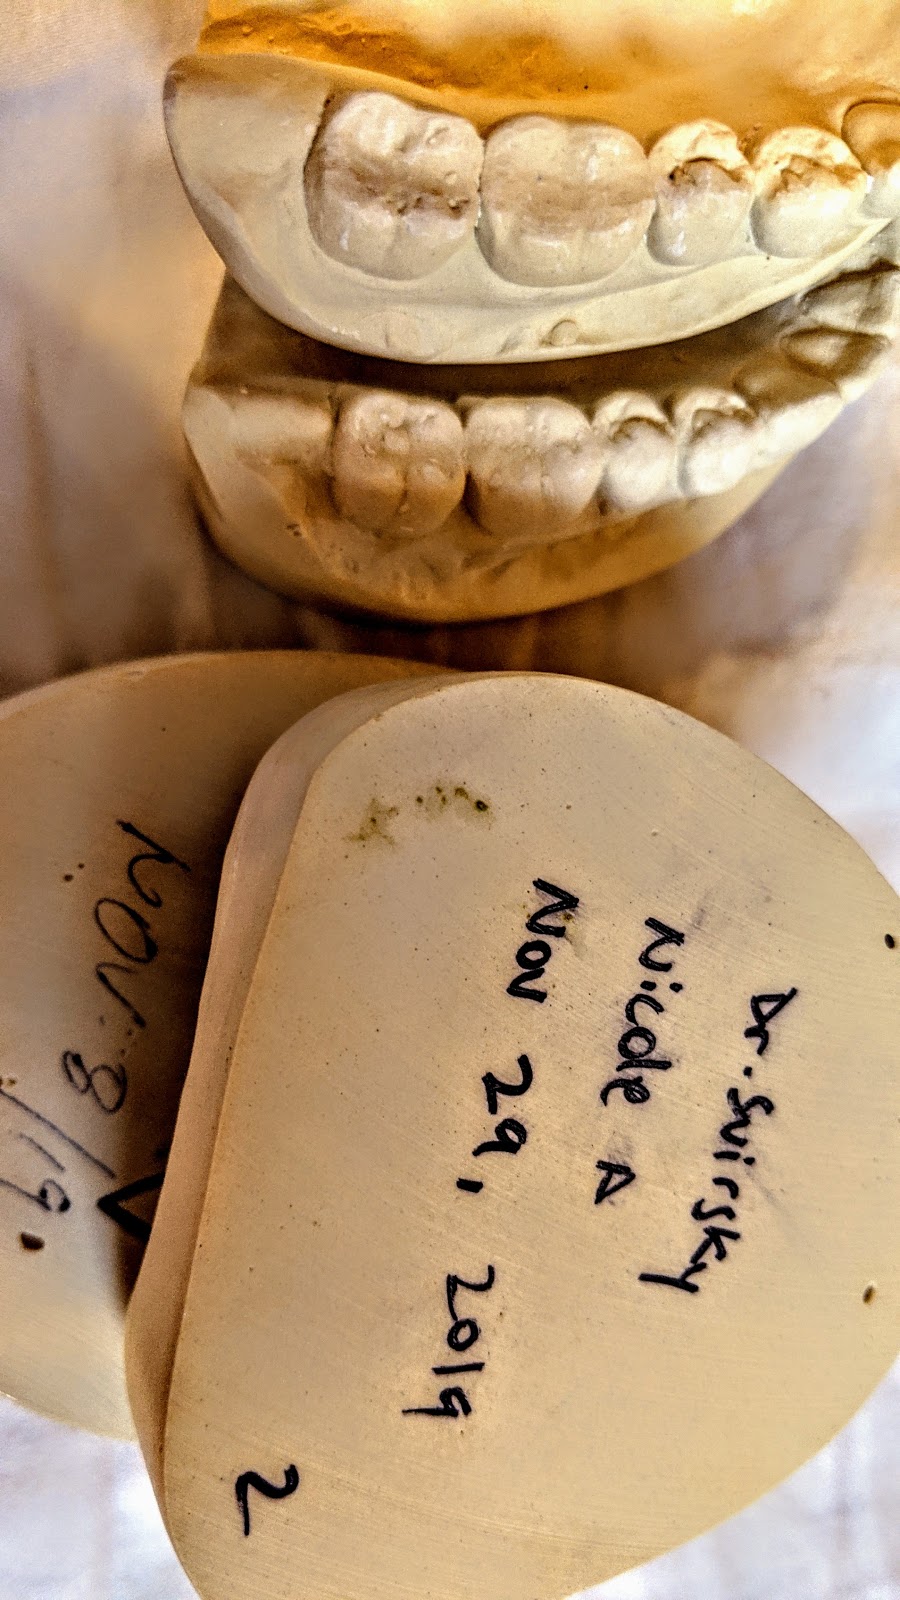 Dr. Svirsky
Nicole A
Nov 29, 2019
2
NOV. 8/19